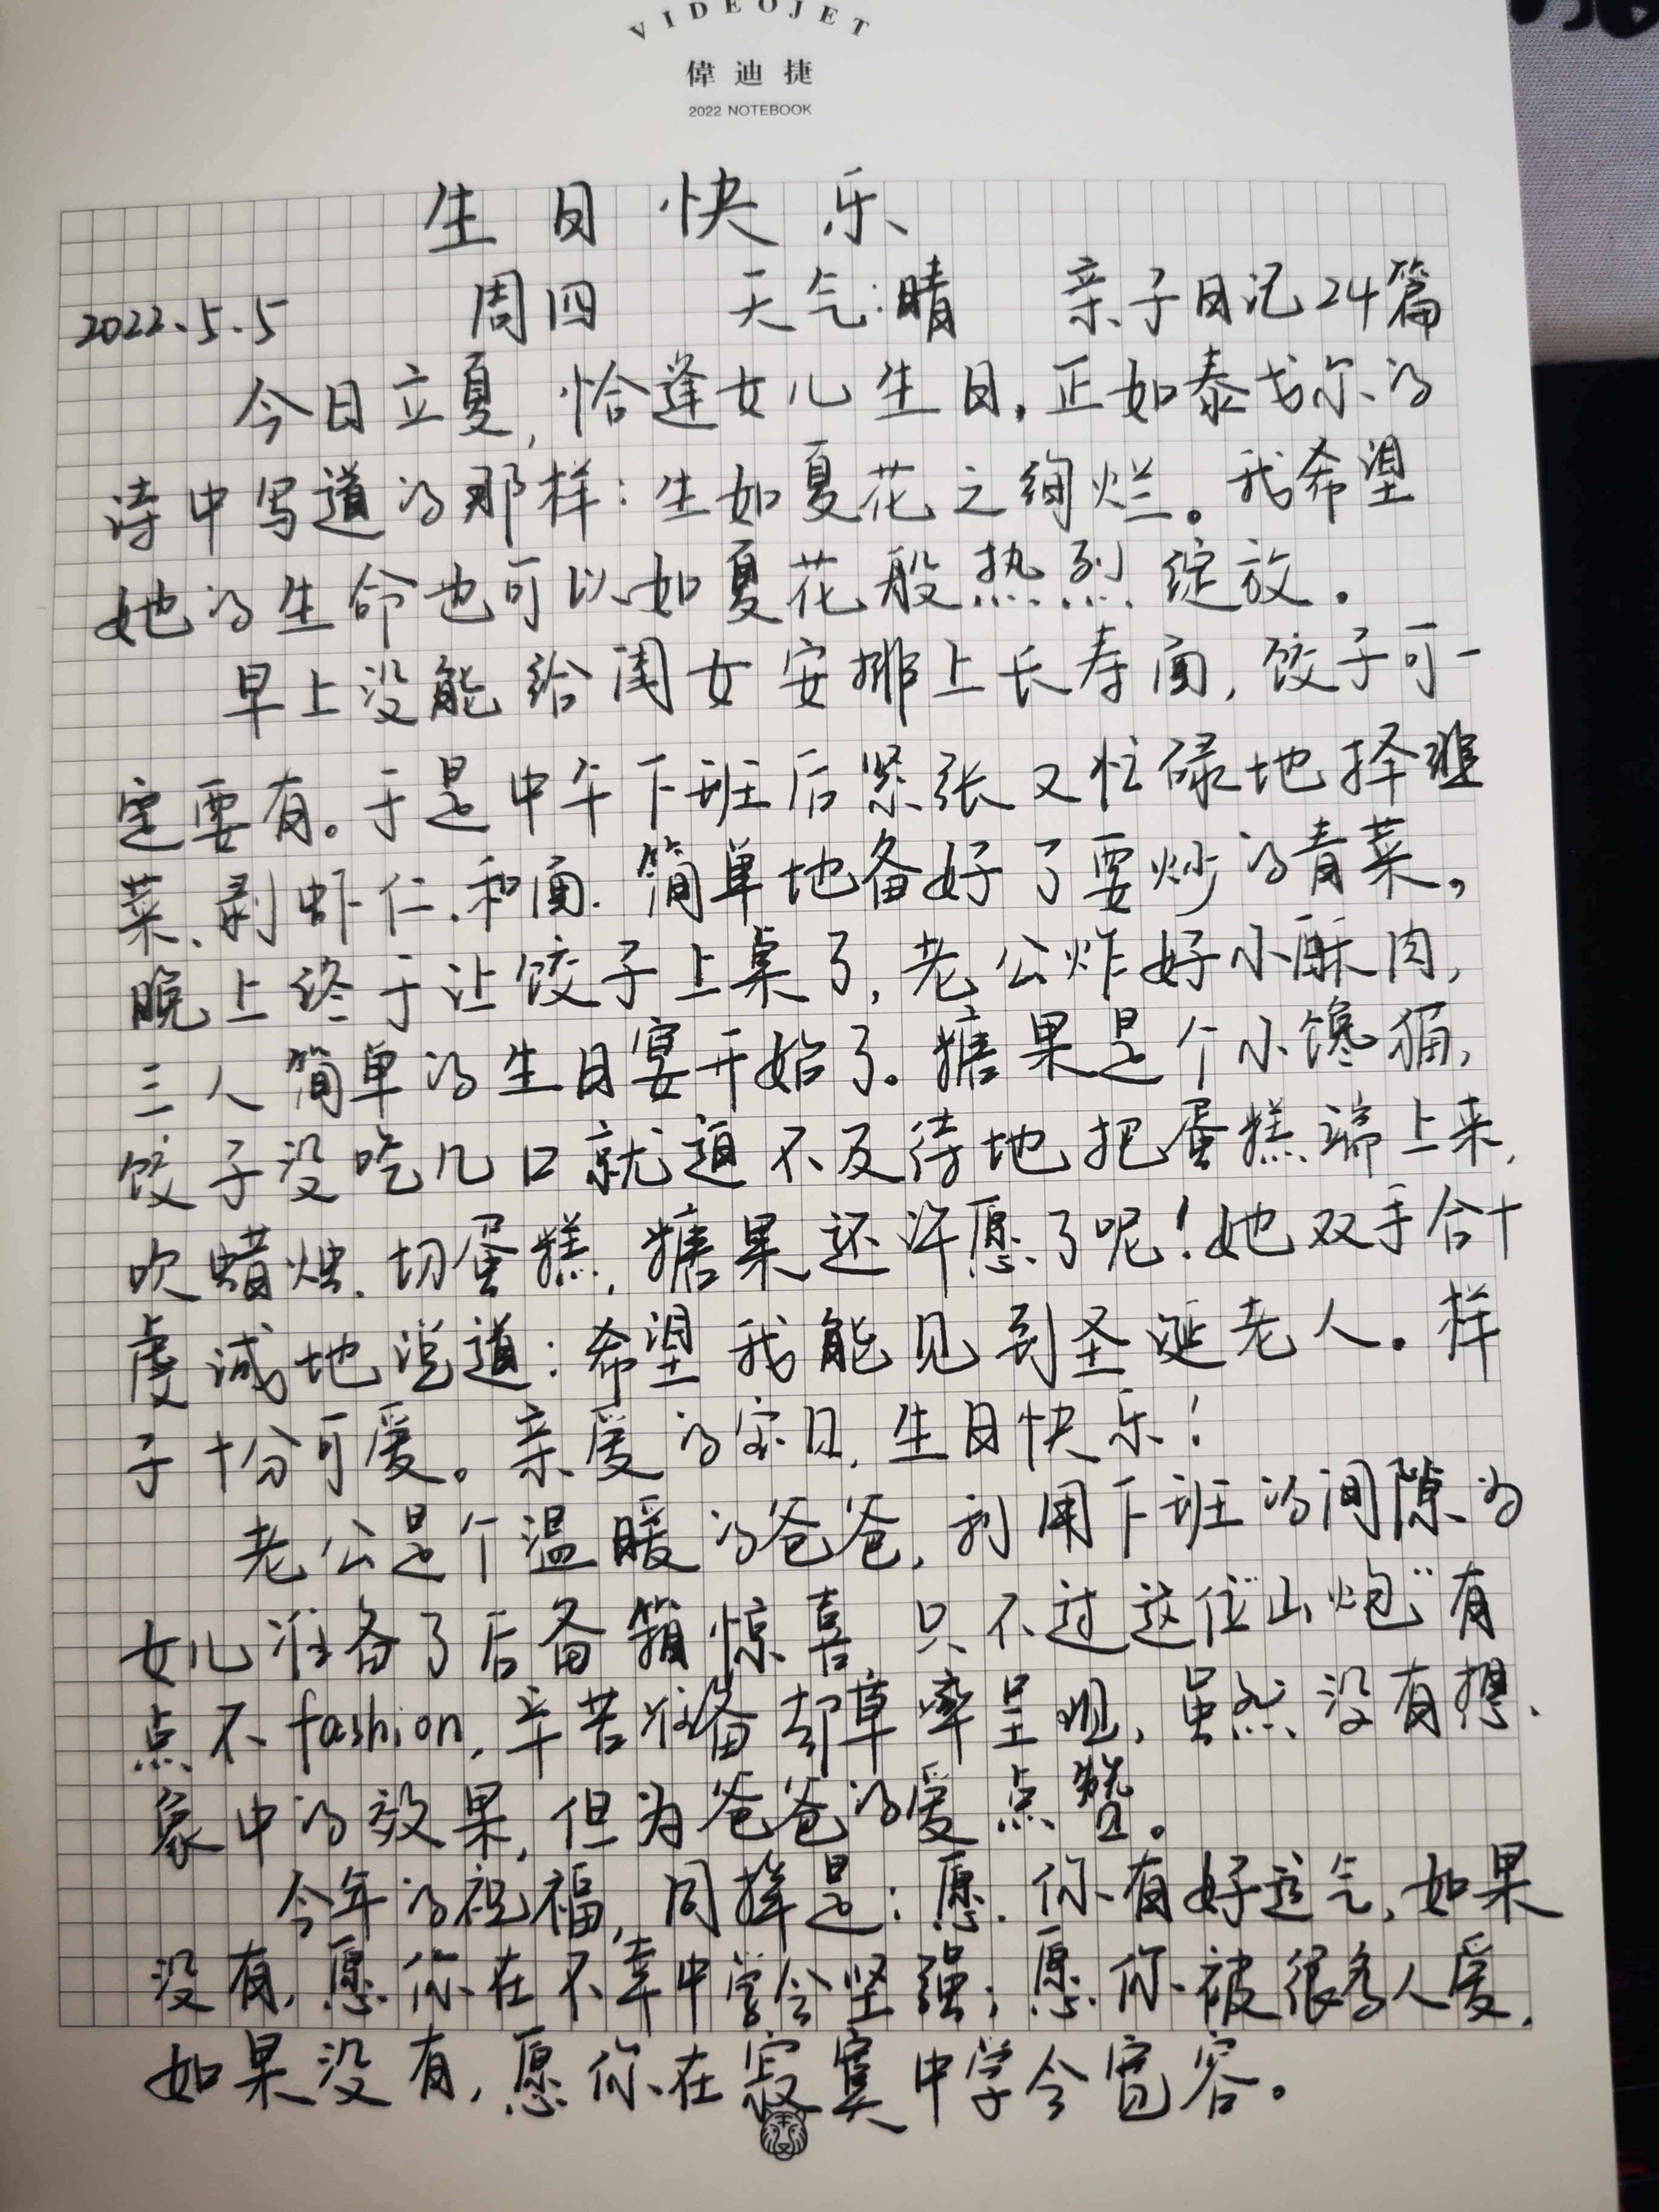 VIDEOJET
偉迪捷
2022 NOTEBOOK
生日快乐
2022.5.5 周四 天气:晴 亲子日记24篇
今日立夏,恰逢女儿生日,正如泰戈尔的
诗中写道的那样:生如夏花之绚烂。我希望
她的生命也可以如夏花般热烈绽放。
早上没能给闺女安排上长寿面,饺子可一
定要有。于是中午下班后紧张又忙碌地择韭
菜、剥虾仁、和面、简单地备好了要炒的青菜。
晚上终于让饺子上桌了,老公炸好小酥肉,
三人简单的生日宴开始了。糖果是个小馋猫,
饺子没吃几口就迫不及待地把蛋糕端上来,
吹蜡烛、切蛋糕,糖果还许愿了呢!她双手合十
虔诚地说道:希望我能见到圣诞老人。样
子十分可爱。亲爱的宝贝,生日快乐!
老公是个温暖的爸爸,利用下班的间隙为
女儿准备了后备箱惊喜 只不过这位“山炮”有
点不fashion,辛苦准备却草率呈现,虽然没有想
象中的效果,但为爸爸的爱点赞。
今年的祝福,同样是:愿你有好运气,如果
没有,愿你在不幸中学会坚强;愿你被很多人爱,
如果没有,愿你在寂寞中学会宽容。